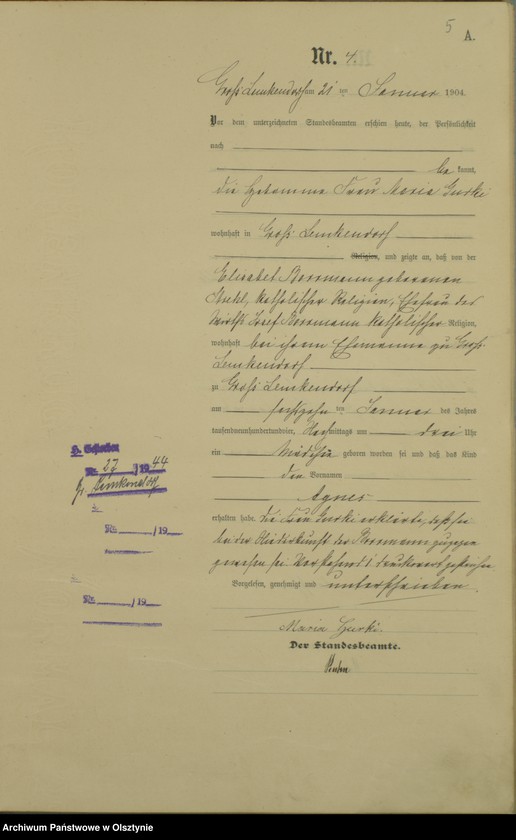 5
A.
Nr. 4.
Groß Lemkendorf am 21 ten Januar 1904.
Vor dem unterzeichneten Standesbeamten erschien heute, der Persönlichkeit
nach
be kannt,
die Hebamme Frau Maria Gurski
wohnhaft in Groß Lemkendorf
Religion, und zeigte an, daß von der
Elisabet Borrmann geborenen
katholischer Religion, Ehefrau des
Wirths Josef Borrmann katholischer Religion,
wohnhaft bei ihrem Ehemanne zu Groß
Lemkendorf
zu Groß Lemkendorf
am sechszehn ten Januar des Jahres
tausendneunhundertundvier, Nachmittags um drei Uhr
ein Mädchen geboren worden sei und daß das Kind
den Vornamen
Agnes
erhalten habe. Die Frau Gurski erklärte, daß sie
bei der Niederkunft der Borrmann zugegen
gewesen sei. Vorstehend 1 Druckwort gestrichen.
Vorgelesen, genehmigt und unterschrieben.
Maria Gurski.
Der Standesbeamte.
H. Gestorben
Nr. 27 /19 44
Gr. Lemkendorf
Nr. /19
Nr. /19
Archiwum Państwowe w Olsztynie